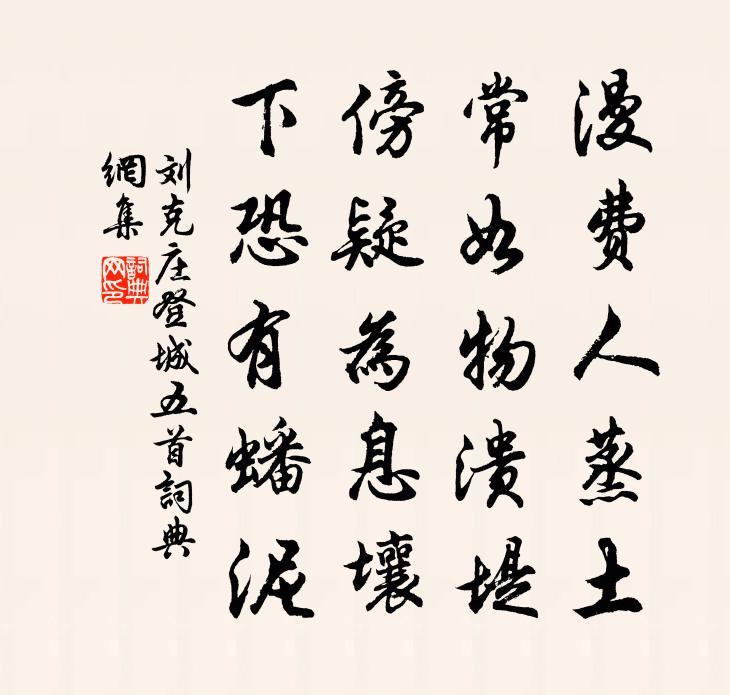 漫費人蒸土
常如物潰堤
傍疑為息壤
下恐有蟠泥
刘克庄登城五首詞典
網集
詞典
网印